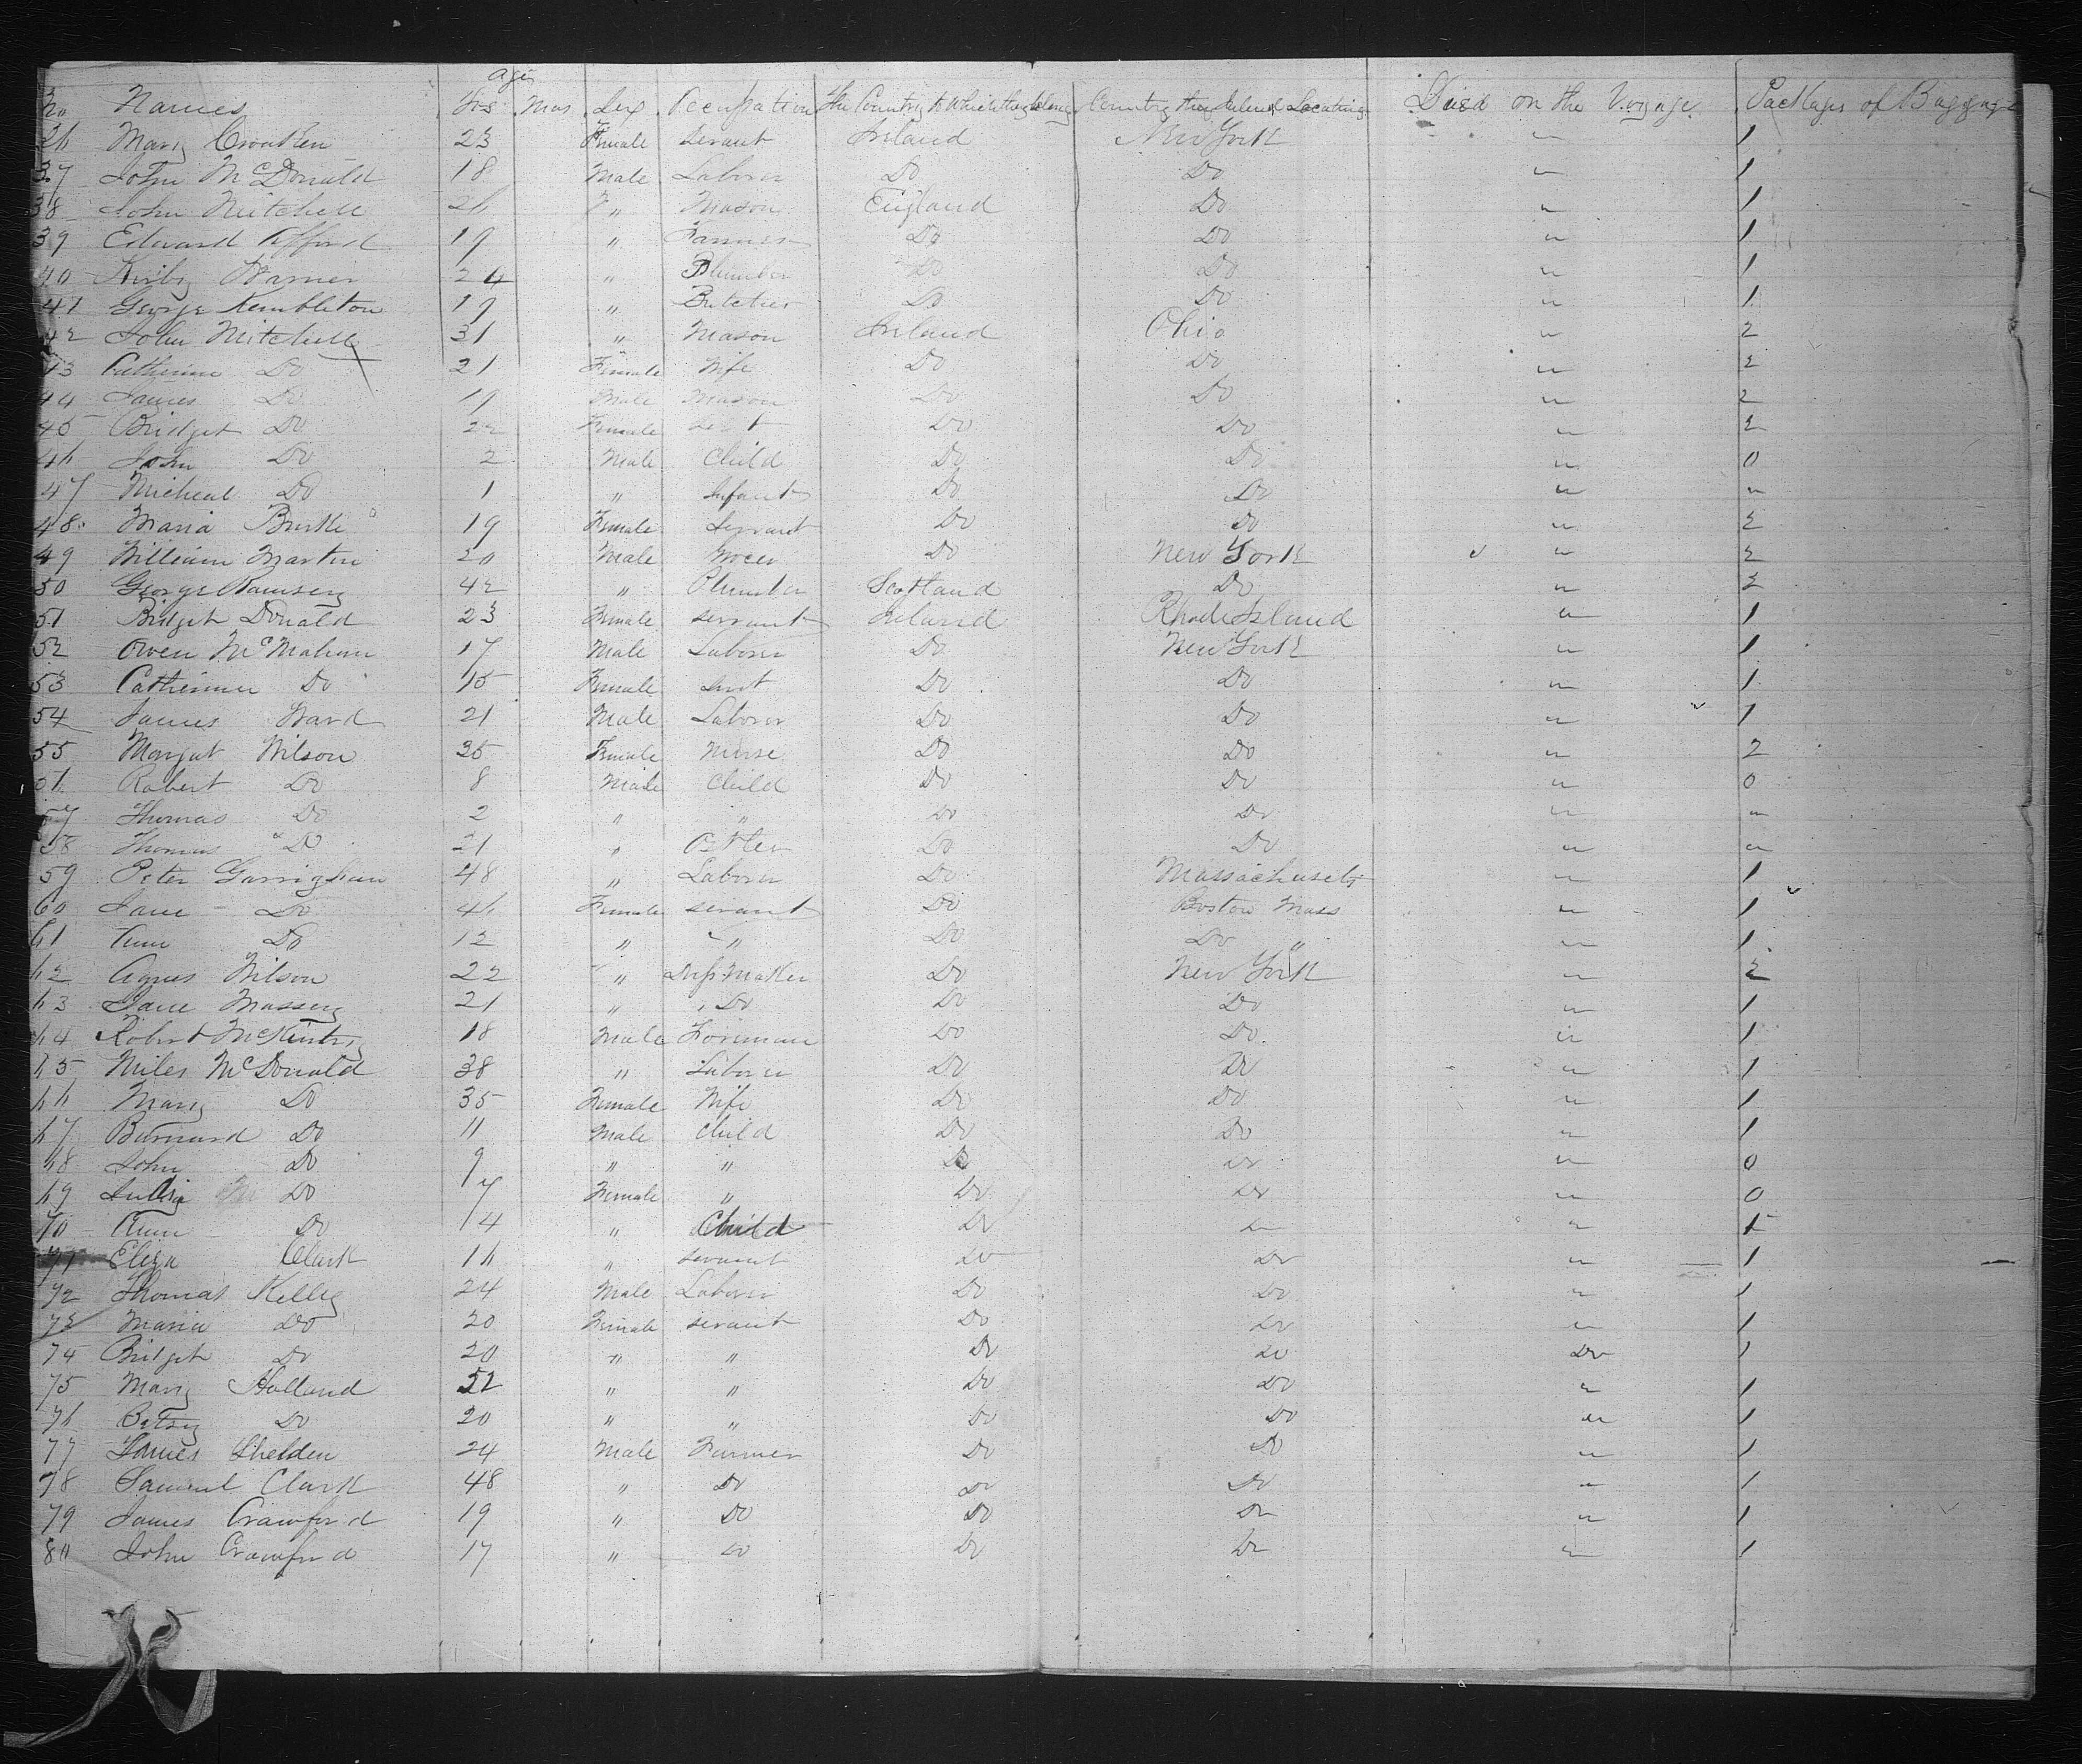 Age
No Names Yrs Mos Sex Occupation The Country to which they belong Country they Intend Locating Died on the Voyage Packages of Baggage
36 Mary 23 Female Servant Ireland New York " 1
37 John McDonald 18 Male Laborer Do Do " 1
38 John Mitchell 26 " Mason England Do " 1
39 Edward 19 " Farmer Do Do " 1
40 Kirby Warner 24 " Plumber Do Do " 1
41 George Kembleton 19 " Butcher Do Do " 1
42 John Mitchell 31 " Mason Ireland Ohio " 2
43 Catherine Do 21 Female Wife Do Do " 2
44 James Do 19 Male Mason Do Do " 2
45 Bridget Do 22 Female Do Do " 2
46 John Do 2 Male Child Do Do " 0
47 Micheal Do 1 " Infant Do Do " "
48 Maria Burke 19 Female Servant Do Do " 2
49 William Martin 20 Male Grocer Do New York " 2
50 George Ramsey 42 " Plumber Scotland Do " 2
51 Bridget Donald 23 Female servant Ireland Rhode Island " 1
52 Owen McMahon 17 Male Laborer Do New York " 1
53 Catherine Do 15 Female Srvt Do Do " 1
54 James Ward 21 Male Laborer Do Do " 1
55 Margat Wilson 35 Female Nurse Do Do " 2
56 Robert Do 8 Male Child Do Do " 0
57 Thomas Do 2 " " Do Do " "
58 Thomas Do 21 " Ostler Do Do " "
59 Peter Garrighan 48 " Laborer Do Massachusets " 1
60 Jane Do 46 Female servant Do Boston Mass " 1
61 Ann Do 12 " " Do Do " " 1
62 Agnes Wilson 22 " Dress Maker Do New York " 2
63 Jane Massey 21 " Do Do Do " 1
64 Robert McKintry 18 Male Foreman Do Do " 1
65 Miles McDonald 38 " Laborer Do Do " 1
66 Mary Do 35 Female Wife Do Do " 1
67 Burnard Do 11 Male Child Do Do " 1
68 John Do 9 " " Do Do " 0
69 Julia Do 7 Female " Do Do " 0
70 Ann Do 14 " Child Do Do " 1
71 Eliza Clark 16 " servant Do Do " 1
72 Thomas Kelly 24 Male Laborer Do Do " 1
73 Maria Do 20 Female servant Do Do " 1
74 Bridget Do 20 " " Do Do Do 1
75 Mary Holland 52 " " Do Do " 1
76 Betsy Do 20 " " Do Do " 1
77 James Shelden 24 Male Farmer Do Do " 1
78 Samuel Clark 48 " Do Do Do " 1
79 James Crawford 19 " Do Do Do " 1
80 John Crawford 17 " Do Do Do " 1